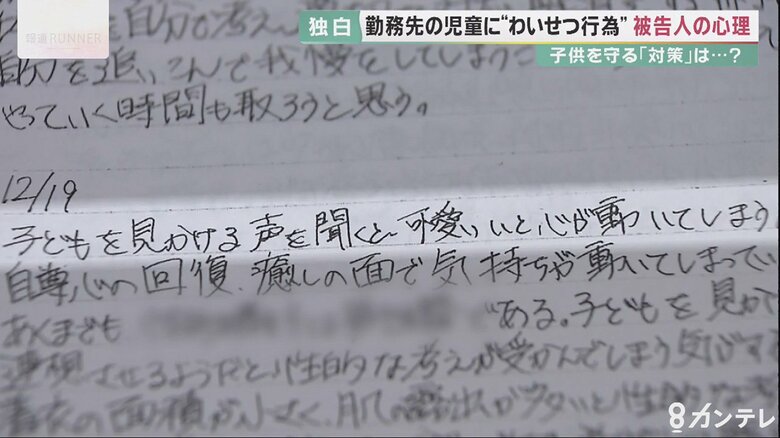 報道RUNNER
独白 勤務先の児童に“わいせつ行為” 被告人の心理
子供を守る「対策」は…？
自分を追いこんで我慢をしてしまう
やっていく時間も取ろうと思う。
12/19
子どもを見かける声を聞くと、可愛いいと、心が動いてしまう
自尊心の回復、癒しの面で気持ちが動いてしまってい
あくまでも
ある。子どもを見かけ
連想させるようだと性的な考えが浮かんでしまう気がす
の面積が小さく、肌の露出が多いと性的な
カンテレ